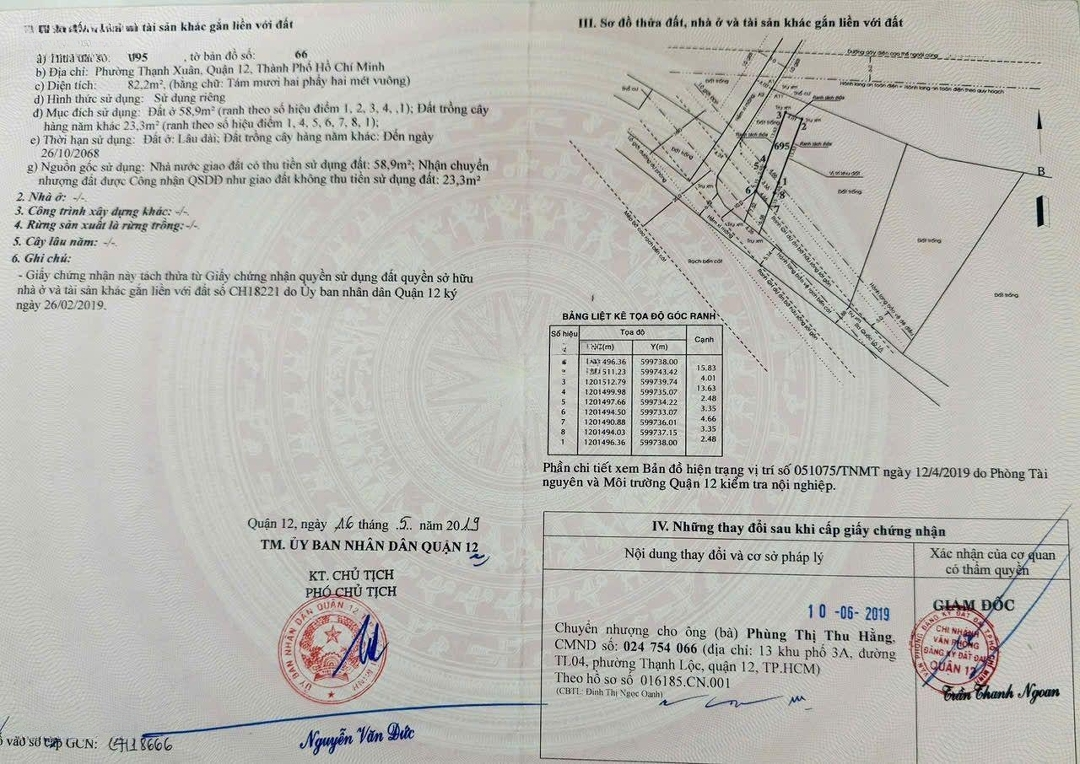 tài sản khác gắn liền với đất
a) Thửa đất số: 695 , tờ bản đồ số: 66
b) Địa chỉ: Phường Thạnh Xuân, Quận 12, Thành Phố Hồ Chí Minh
c) Diện tích: 82,2m², (bằng chữ: Tám mươi hai phẩy hai mét vuông)
d) Hình thức sử dụng: Sử dụng riêng
đ) Mục đích sử dụng: Đất ở 58,9m² (ranh theo số hiệu điểm 1, 2, 3, 4, ,1); Đất trồng cây
hàng năm khác 23,3m² (ranh theo số hiệu điểm 1, 4, 5, 6, 7, 8, 1);
e) Thời hạn sử dụng: Đất ở: Lâu dài; Đất trồng cây hàng năm khác: Đến ngày
26/10/2068
g) Nguồn gốc sử dụng: Nhà nước giao đất có thu tiền sử dụng đất: 58,9m²; Nhận chuyển
nhượng đất được Công nhận QSDĐ như giao đất không thu tiền sử dụng đất: 23,3m²
2. Nhà ở: -/-
3. Công trình xây dựng khác: -/-
4. Rừng sản xuất là rừng trồng: -/-
5. Cây lâu năm: -/-
6. Ghi chú:
- Giấy chứng nhận này tách thửa từ Giấy chứng nhận quyền sử dụng đất quyền sở hữu
nhà ở và tài sản khác gắn liền với đất số CH18221 do Ủy ban nhân dân Quận 12 ký
ngày 26/02/2019.
Quận 12, ngày 16 tháng 5 năm 2019
TM. ỦY BAN NHÂN DÂN QUẬN 12
KT. CHỦ TỊCH
PHÓ CHỦ TỊCH
ỦY BAN NHÂN DÂN QUẬN 12
Nguyễn Văn Đức
vào sổ cấp GCN: CH18666
III. Sơ đồ thửa đất, nhà ở và tài sản khác gắn liền với đất
Đường dây điện cao thế ngoài cùng
Hành lang an toàn điện
Hành lang an toàn điện theo quy hoạch
Đất trống
Thổ cư
Trụ xm
Ranh lãnh thửa
3
2
695
4
1
6
8
Vị trí khu đất
Đất trống
Đất trống
Đất trống
Rạch bến cát
B
BẢNG LIỆT KÊ TỌA ĐỘ GÓC RANH
Số hiệu Tọa độ Cạnh
X(m) Y(m)
496.36 599738.00
15.83
511.23 599743.42
4.01
3 1201512.79 599739.74
13.63
4 1201499.98 599735.07
2.48
5 1201497.66 599734.22
3.35
6 1201494.50 599733.07
4.66
7 1201490.88 599736.01
3.35
8 1201494.03 599737.15
2.48
1 1201496.36 599738.00
Phần chi tiết xem Bản đồ hiện trạng vị trí số 051075/TNMT ngày 12/4/2019 do Phòng Tài
nguyên và Môi trường Quận 12 kiểm tra nội nghiệp.
IV. Những thay đổi sau khi cấp giấy chứng nhận
Nội dung thay đổi và cơ sở pháp lý
Xác nhận của cơ quan
có thẩm quyền
10 -06- 2019
Chuyển nhượng cho ông (bà) Phùng Thị Thu Hằng,
CMND số: 024 754 066 (địa chỉ: 13 khu phố 3A, đường
TL04, phường Thạnh Lộc, quận 12, TP.HCM)
Theo hồ sơ số 016185.CN.001
(CBTL: Đinh Thị Ngọc Oanh)
GIÁM ĐỐC
CHI NHÁNH
VĂN PHÒNG
ĐĂNG KÝ ĐẤT ĐAI
QUẬN 12
Trần Thanh Ngoan